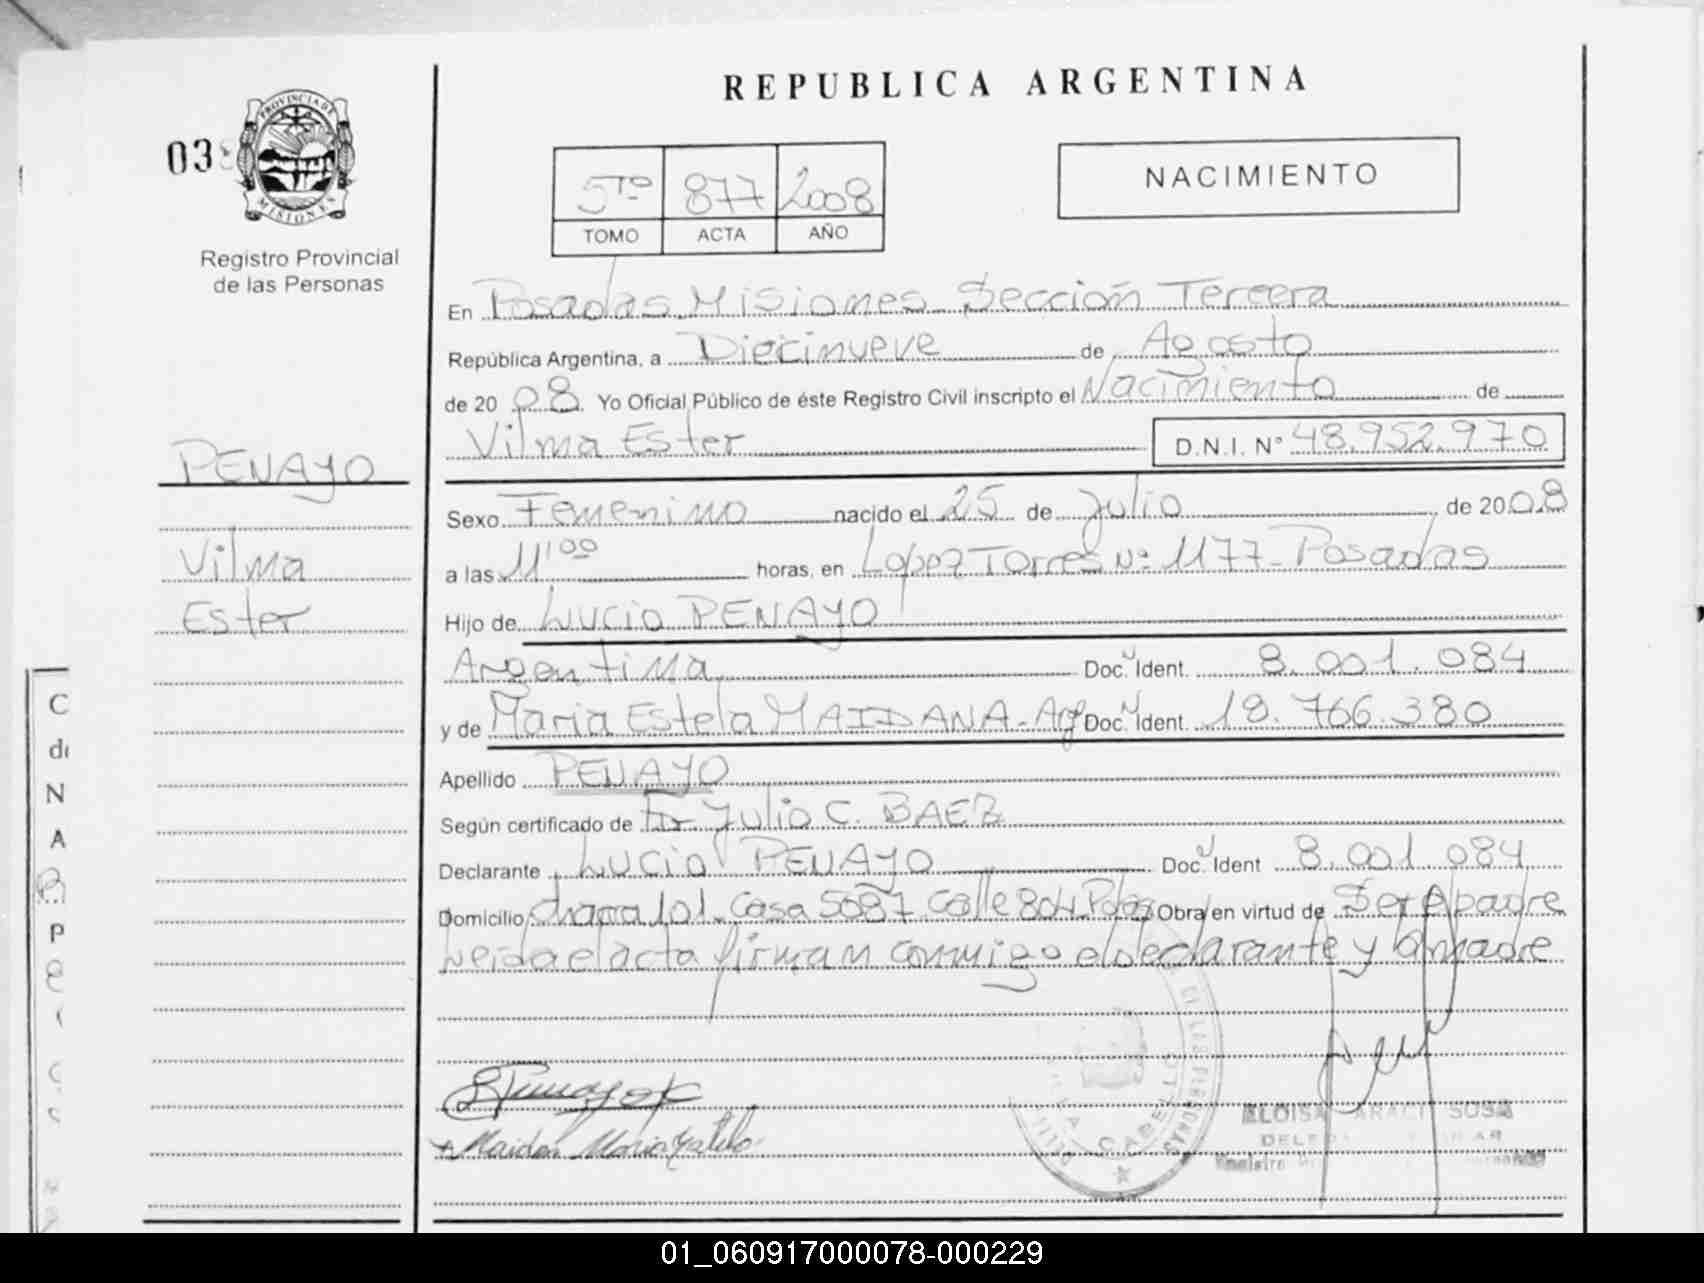 REPUBLICA ARGENTINA
PROVINCIA DE
MISIONES
03
Registro Provincial
de las Personas
5TO 877 2008
TOMO ACTA AÑO
NACIMIENTO
En Posadas Misiones Sección Tercera
República Argentina, a Diecinueve de Agosto
de 20 08 Yo Oficial Público de éste Registro Civil inscripto el Nacimiento de
Vilma Ester D.N.I. N° 48.952.970
PENAYO
Vilma
Ester
Sexo Femenino nacido el 25 de Julio de 2008
a las 11'00 horas, en Lopez Torres Nº 1177-Posadas
Hijo de Lucio PENAYO
Argentina Doc. Ident. 8.001.084
y de Maria Estela MAIDANA-Arg Doc. Ident. 18.766.380
Apellido PENAYO
Según certificado de Dr Julio C. BAEZ
Declarante Lucio PENAYO Doc. Ident 8.001.084
Domicilio chacra 101-Casa 5687 Calle 804 Pdas Obra en virtud de Ser el padre
Leida el acta firman conmigo el declarante y la madre
DE LAS PERSONAS
CABELLO
ELOISA ARACI SOSA
01_060917000078-000229